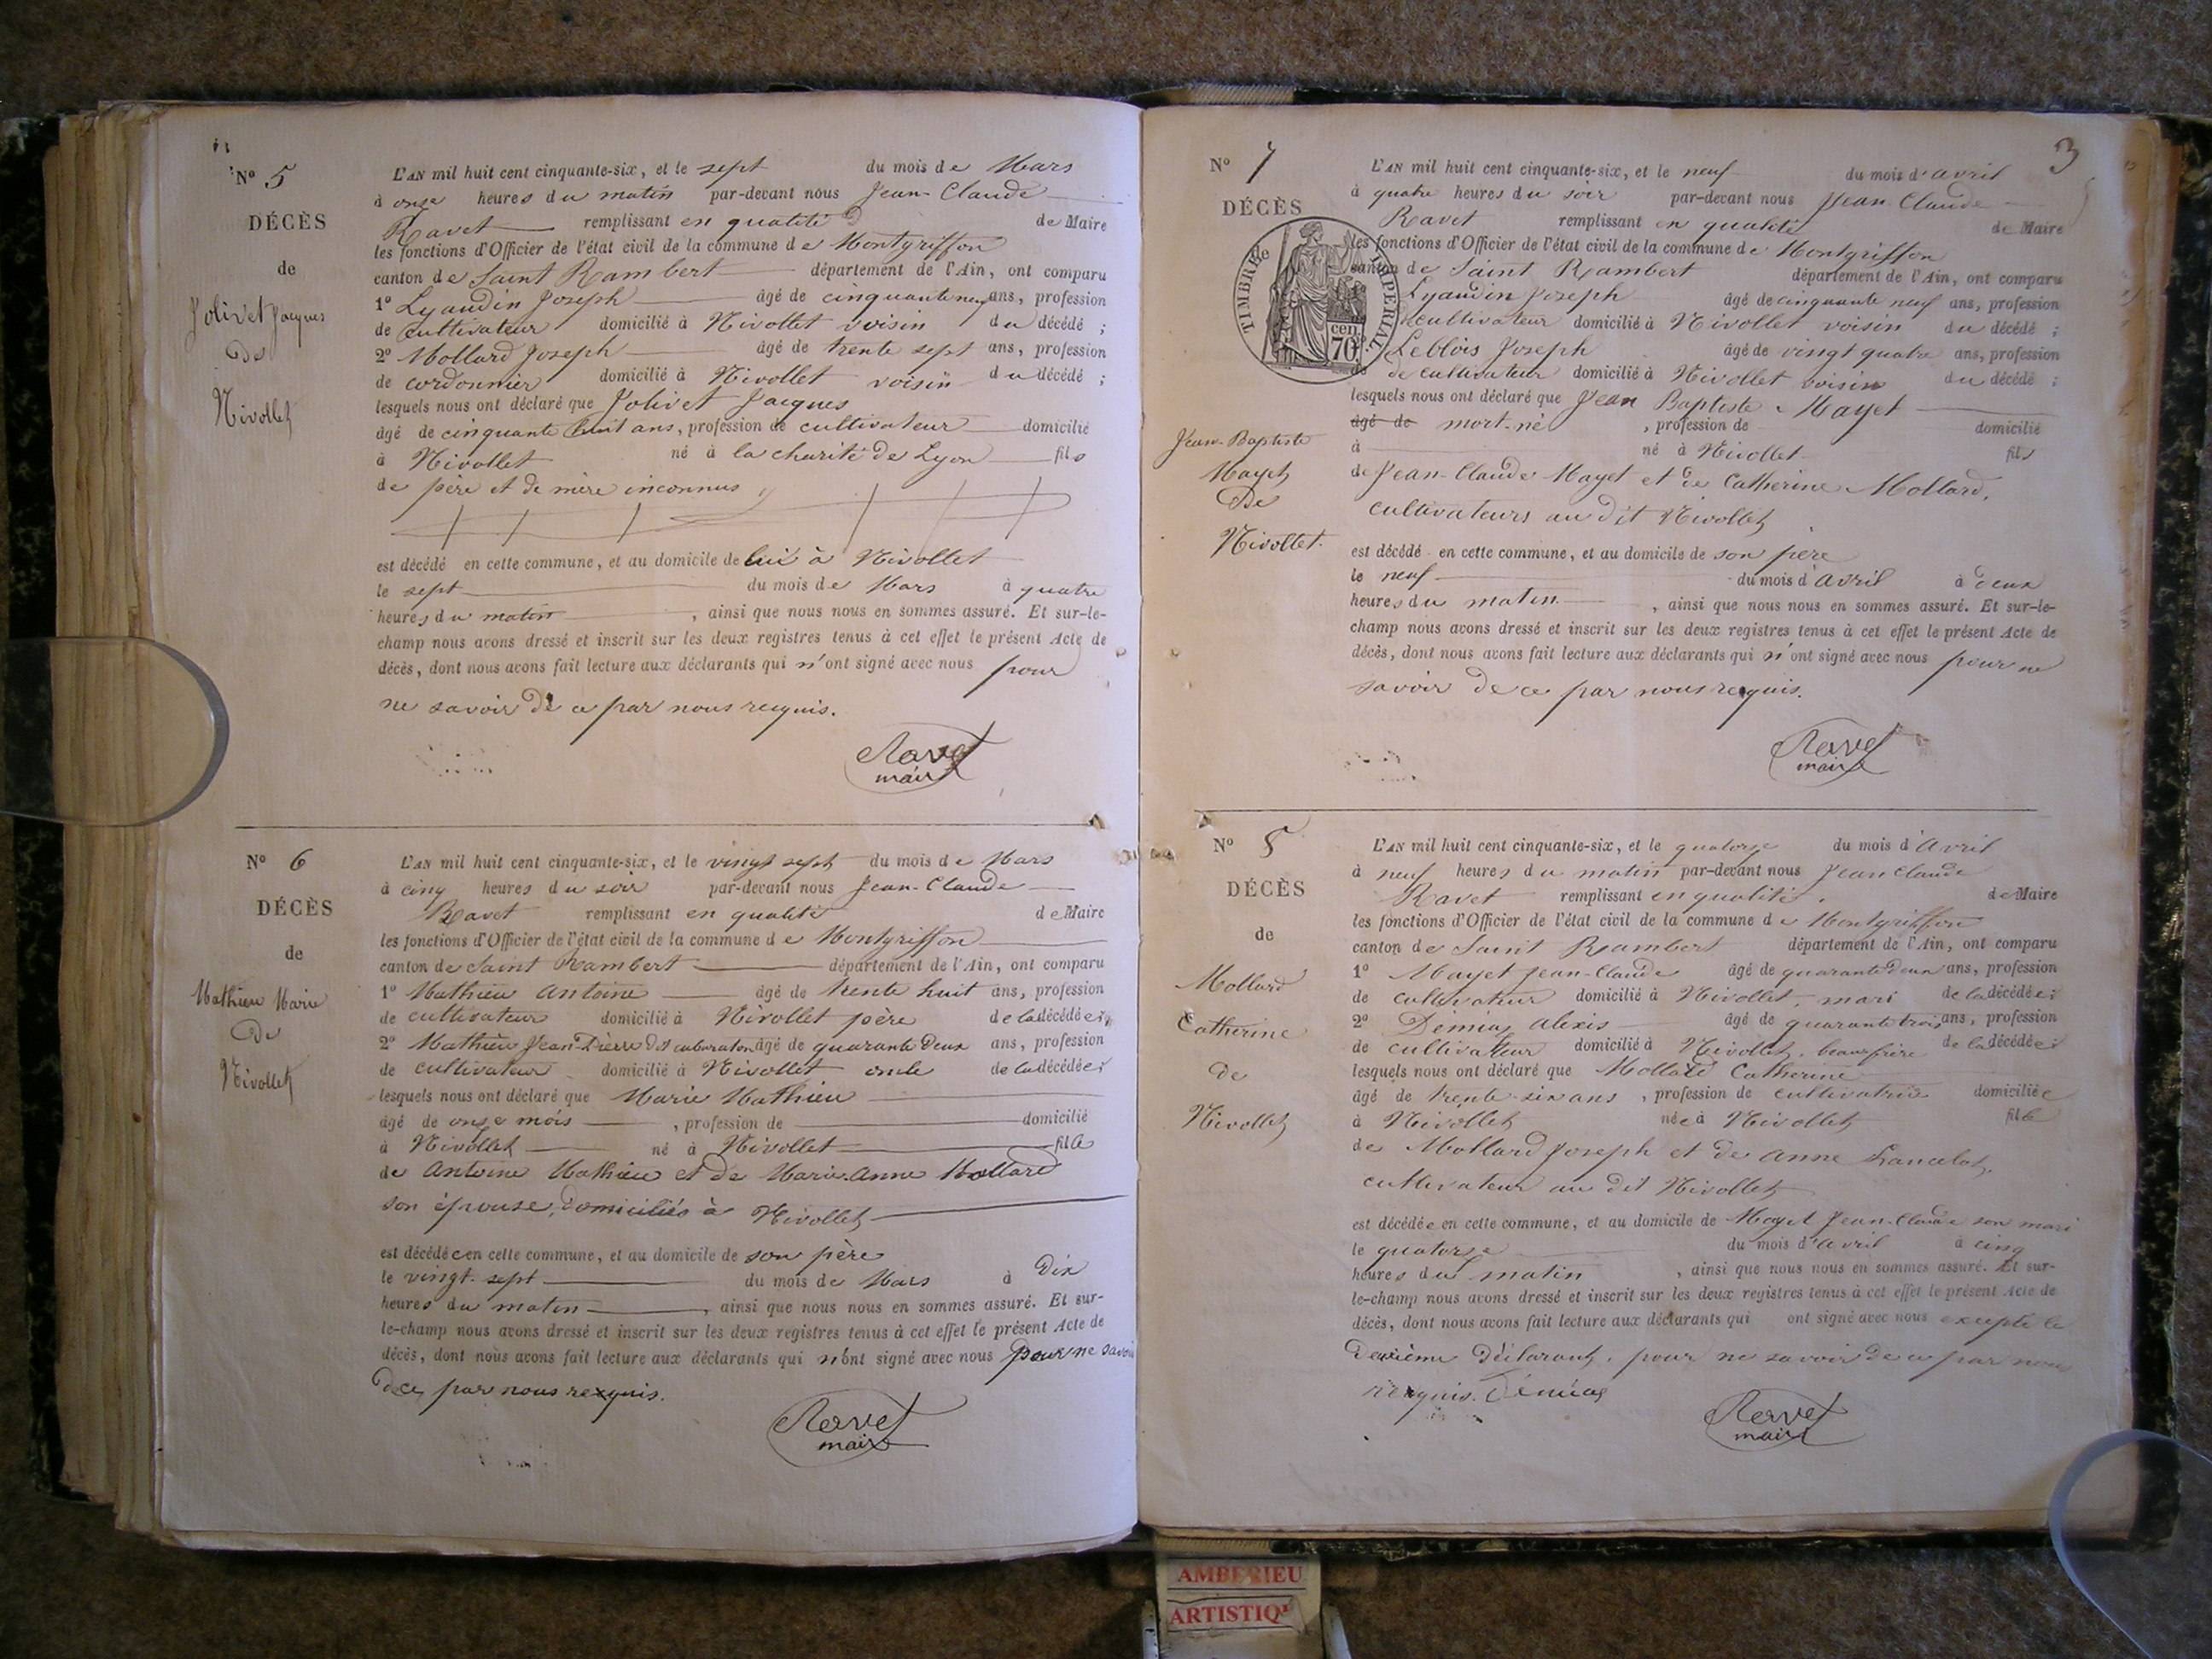 N° 5
DÉCÈS
de
Jolivet Jacques
De
Nivollet
L'AN mil huit cent cinquante-six, et le sept du mois de Mars
à onze heures du matin par-devant nous Jean-Claude
Ravet remplissant en qualité de Maire
les fonctions d'Officier de l'état civil de la commune de Montgriffon
canton de Saint Rambert département de l'Ain, ont comparu
1° Lyaudin Joseph âgé de cinquante neuf ans, profession
de cultivateur domicilié à Nivollet voisin du décédé ;
2° Mollard Joseph âgé de trente sept ans, profession
de cordonnier domicilié à Nivollet voisin du décédé ;
lesquels nous ont déclaré que Jolivet Jacques
âgé de cinquante huit ans, profession de cultivateur domicilié
à Nivollet né à la charité de Lyon fils
de père et de mère inconnus
est décédé en cette commune, et au domicile de lui à Nivollet
le sept du mois de Mars à quatre
heures du matin, ainsi que nous nous en sommes assuré. Et sur-le-
champ nous avons dressé et inscrit sur les deux registres tenus à cet effet le présent Acte de
décès, dont nous avons fait lecture aux déclarants qui n'ont signé avec nous pour
ne savoir de ce par nous requis.
Ravet
maire
N° 6
DÉCÈS
de
Mathieu Marie
De
Nivollet
L'AN mil huit cent cinquante-six, et le vingt sept du mois de Mars
à cinq heures du soir par-devant nous Jean-Claude
Ravet remplissant en qualité de Maire
les fonctions d'Officier de l'état civil de la commune de Montgriffon
canton de Saint Rambert département de l'Ain, ont comparu
1° Mathieu Antoine âgé de trente huit ans, profession
de cultivateur domicilié à Nivollet père de la décédée ;
2° Mathieu Jean-Pierre dit âgé de quarante deux ans, profession
de cultivateur domicilié à Nivollet oncle de la décédée ;
lesquels nous ont déclaré que Marie Mathieu
âgé de onze mois, profession de domicilié
à Nivollet né à Nivollet fille
de Antoine Mathieu et de Marie-Anne Mollard
son épouse, domiciliés à Nivollet
est décédée en cette commune, et au domicile de son père
le vingt-sept du mois de Mars à Dix
heures du matin, ainsi que nous nous en sommes assuré. Et sur-
le-champ nous avons dressé et inscrit sur les deux registres tenus à cet effet le présent Acte de
décès, dont nous avons fait lecture aux déclarants qui n'ont signé avec nous pour ne savoir
de ce par nous requis.
Ravet
maire
3
N° 7
DÉCÈS
TIMBRE IMPERIAL
cen. 70
Jean-Baptiste
Mayet
De
Nivollet.
L'AN mil huit cent cinquante-six, et le neuf du mois d'avril
à quatre heures du soir par-devant nous Jean-Claude
Ravet remplissant en qualité de Maire
les fonctions d'Officier de l'état civil de la commune de Montgriffon
canton de Saint Rambert département de l'Ain, ont comparu
Lyaudin Joseph âgé de cinquante neuf ans, profession
cultivateur domicilié à Nivollet voisin du décédé ;
Leblois Joseph âgé de vingt quatre ans, profession
de cultivateur domicilié à Nivollet voisin du décédé ;
lesquels nous ont déclaré que Jean Baptiste Mayet
âgé de mort-né, profession de domicilié
à né à Nivollet fils
de Jean-Claude Mayet et de Catherine Mollard,
cultivateurs au dit Nivollet
est décédé en cette commune, et au domicile de son père
le neuf du mois d'avril à deux
heures du matin, ainsi que nous nous en sommes assuré. Et sur-le-
champ nous avons dressé et inscrit sur les deux registres tenus à cet effet le présent Acte de
décès, dont nous avons fait lecture aux déclarants qui n'ont signé avec nous pour ne
savoir de ce par nous requis.
Ravet
maire
N° 8
DÉCÈS
de
Mollard
Catherine
de
Nivollet
L'AN mil huit cent cinquante-six, et le quatorze du mois d'Avril
à neuf heures du matin par-devant nous Jean Claude
Ravet remplissant en qualité de Maire
les fonctions d'Officier de l'état civil de la commune de Montgriffon
canton de Saint Rambert département de l'Ain, ont comparu
1° Mayet Jean-Claude âgé de quarante deux ans, profession
de cultivateur domicilié à Nivollet, mari de la décédée ;
2° Démias Alexis âgé de quarante trois ans, profession
de cultivateur domicilié à Nivollet, beau frère de la décédée ;
lesquels nous ont déclaré que Mollard Catherine
âgé de trente-six ans, profession de cultivatrice domiciliée
à Nivollet née à Nivollet fille
de Mollard Joseph et de Anne Lancelot,
cultivateur au dit Nivollet
est décédée en cette commune, et au domicile de Mayet Jean-Claude son mari
le quatorze du mois d'avril à cinq
heures du matin, ainsi que nous nous en sommes assuré. Et sur-
le-champ nous avons dressé et inscrit sur les deux registres tenus à cet effet le présent Acte de
décès, dont nous avons fait lecture aux déclarants qui ont signé avec nous excepté le
deuxième déclarant, pour ne savoir de ce par nous
requis. Démias
Ravet
maire
AMBERIEU
ARTISTIQU